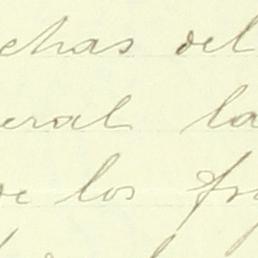 chas del
eral la
de los